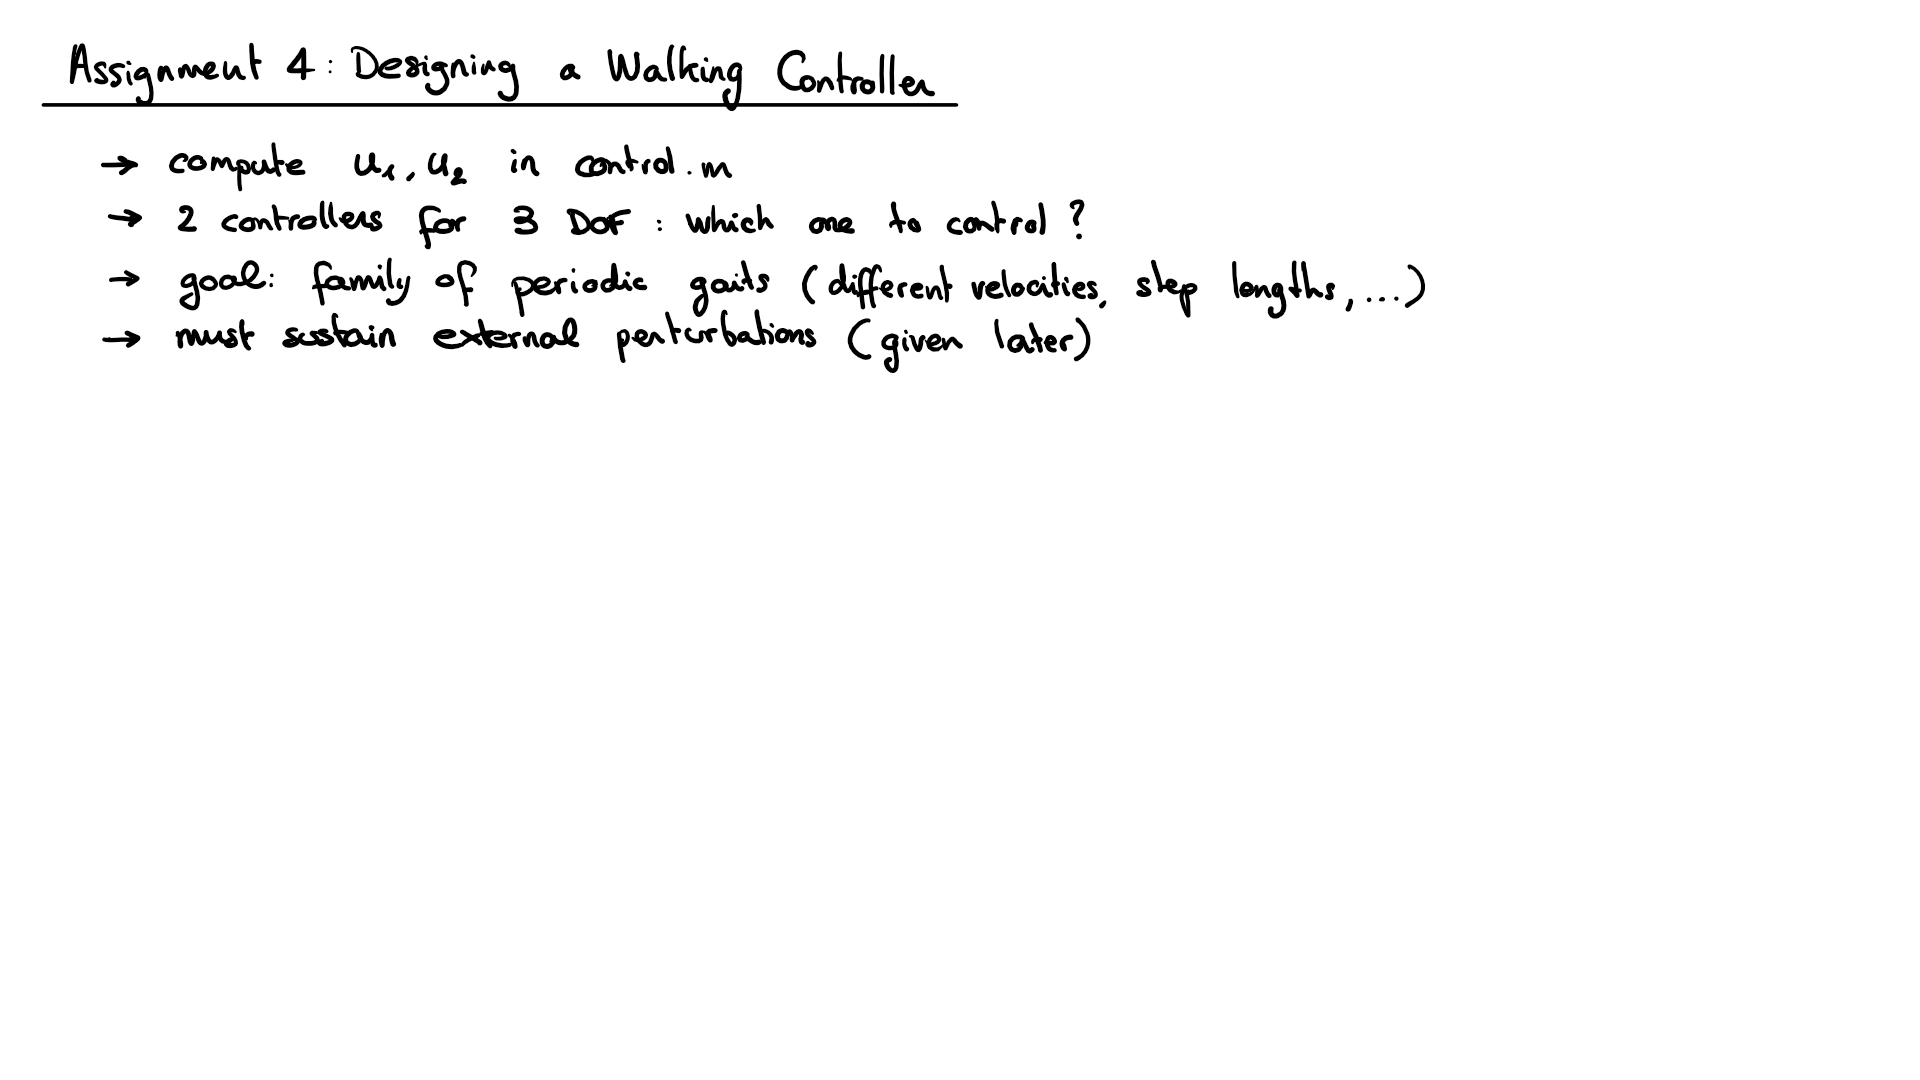 Assignment 4: Designing a Walking Controller
→ compute u₁, u₂ in control.m
→ 2 controllers for 3 DoF : which one to control ?
→ goal: family of periodic gaits (different velocities, step lengths, ...)
→ must sustain external perturbations (given later)